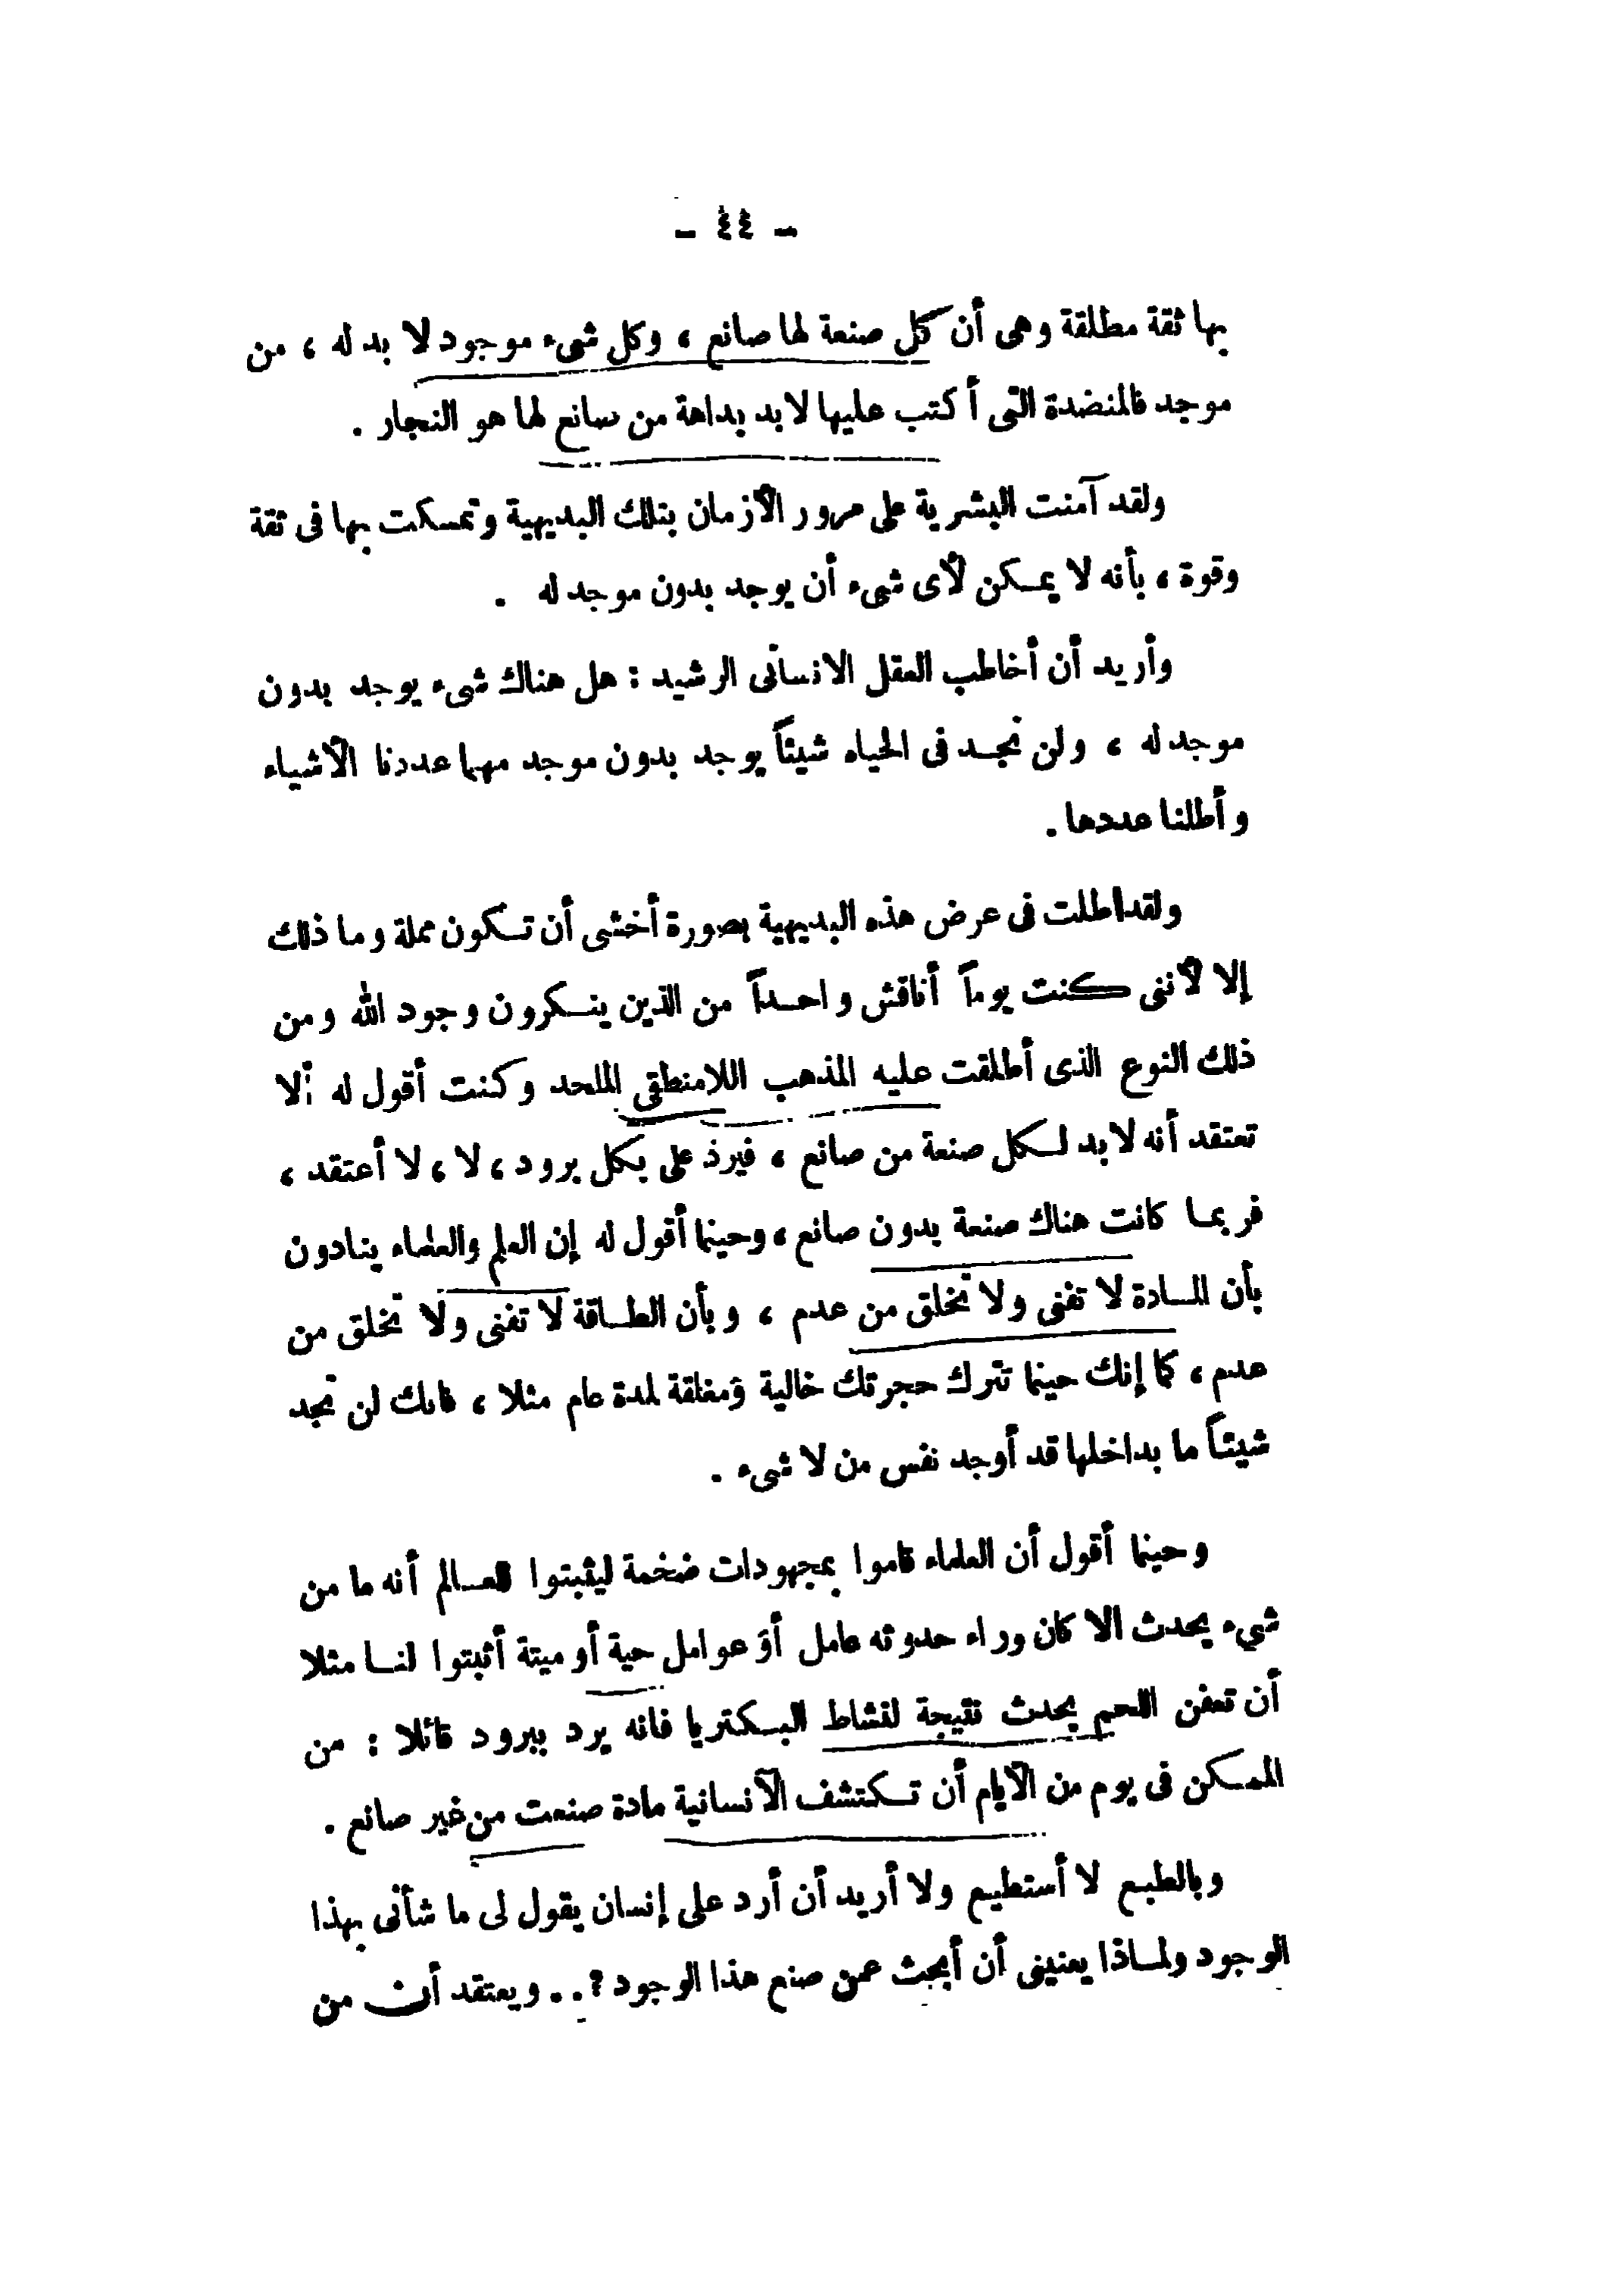 - ٤٤ -
بها ثقة مطلقة وهى أن كل صنعة لها صانع ، وكل شىء موجود لا بد له ، من
موجد فالمنضدة التى أكتب عليها لابد بداهة من سانع لها هو النجار .
ولقد آمنت البشرية على مرور الأزمان بتلك البديهية وتمسكت بها فى ثقة
وقوة ، بأنه لا يمكن لأى شىء أن يوجد بدون موجد له .
وأريد أن أخاطب العقل الانسانى الرشيد : هل هناك شىء يوجد بدون
موجد له ، ولن نجد فى الحياه شيئاً يوجد بدون موجد مهما عددنا الأشياء
وأطلنا عددها .
ولقد اطلت فى عرض هذه البديهية بصورة أخشى أن تكون مملة وما ذلك
إلا لأننى كنت يوماً أناقش واحداً من الذين ينكرون وجود الله ومن
ذلك النوع الذى أطلقت عليه المذهب اللامنطقى الملحد وكنت أقول له ألا
تعتقد أنه لابد لكل صنعة من صانع ، فيرد على بكل برود ، لا ، لا أعتقد ،
فربما كانت هناك صنعة بدون صانع ، وحينما أقول له إن العلم والعلماء ينادون
بأن المادة لا تفنى ولا تخلق من عدم ، وبأن الطاقة لا تفنى ولا تخلق من
عدم ، كما إنك حينما تترك حجرتك خالية ومغلقة لمدة عام مثلا ، فانك لن تجد
شيئاً ما بداخلها قد أوجد نفس من لا شىء .
وحينما أقول أن العلماء قاموا بمجهودات ضخمة ليثبتوا للعالم أنه ما من
شيء يحدث الا كان وراء حدوثه عامل أو عوامل حية أو ميتة أثبتوا لنا مثلا
أن تعفن اللحم يحدث نتيجة لنشاط البكتريا فانه يرد ببرود قائلا : من
الممكن فى يوم من الأيام أن تكتشف الأنسانية مادة صنعت من غير صانع .
وبالطبع لا أستطيع ولا أريد أن أرد على إنسان يقول لى ما شأنى بهذا
الوجود ولماذا يعنينى أن أبحث عمن صنع هذا الوجود ؟ . . ويعتقد أن من